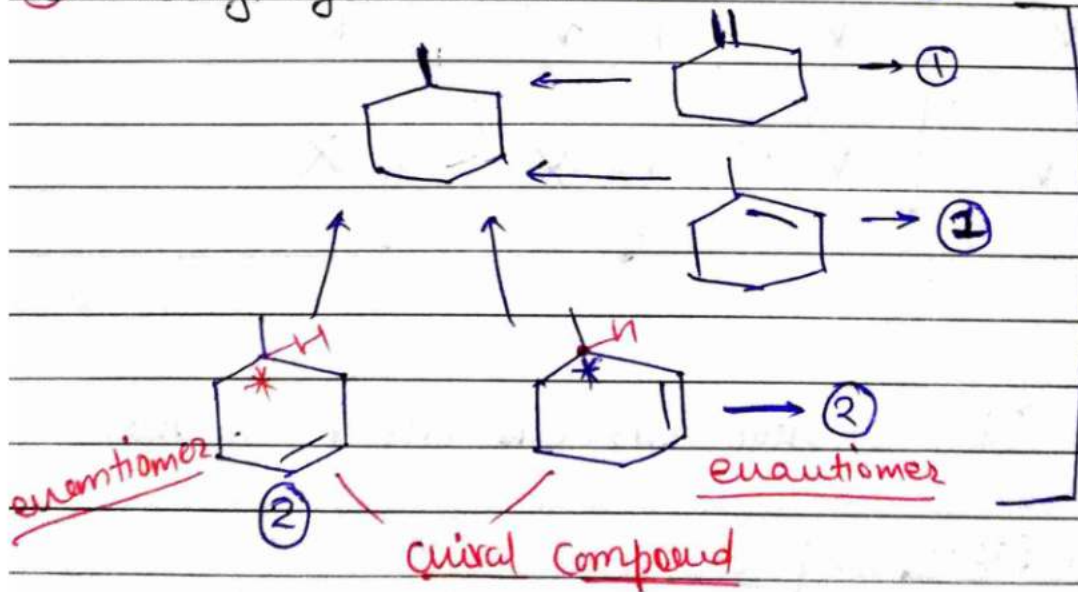 ①
①
H
*
H
*
②
enantiomer
②
enantiomer
chiral Compound